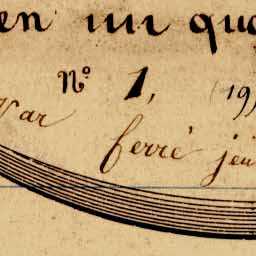 en un qua
N° 1, (19
Par ferré jeu